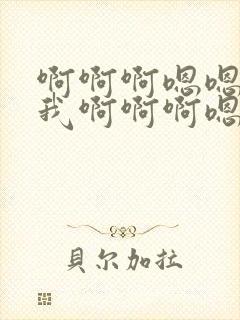 啊啊啊嗯嗯
我啊啊啊嗯
貝尔加拉